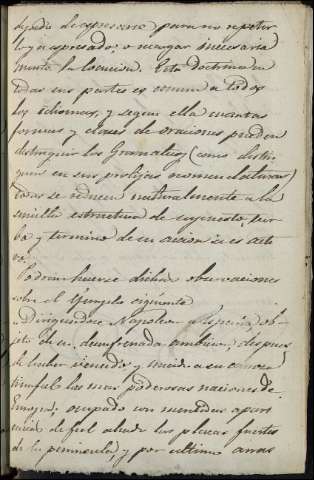 dejado de espresarse, para no repetir
lo ya espresado, o recargar inecesaria
mente la locucion. Esta doctrina en
todas sus partes es comun a todos
los idiomas, y segun ella cuantas
formas y clases de oraciones puedan
distinguir los Gramaticos (como distin
guen en sus prolijas nomenclaturas)
todas se reducen naturalmente a la
sencilla estructura de supuesto, ver
bo y termino de su accion si es acti
vo.
Podran hacerse dichas observaciones
sobre el Egemplo siguiente
Dirigiendose Napoleon a España ob-
jeto de su desenfrenada ambicion, despues
de haber vencido y uncido a su carroza
triunfal las mas poderosas naciones de
Europa, ocupado con mentidas apari
encias de fiel aliado las plazas fuertes
de la peninsula, y por ultimo